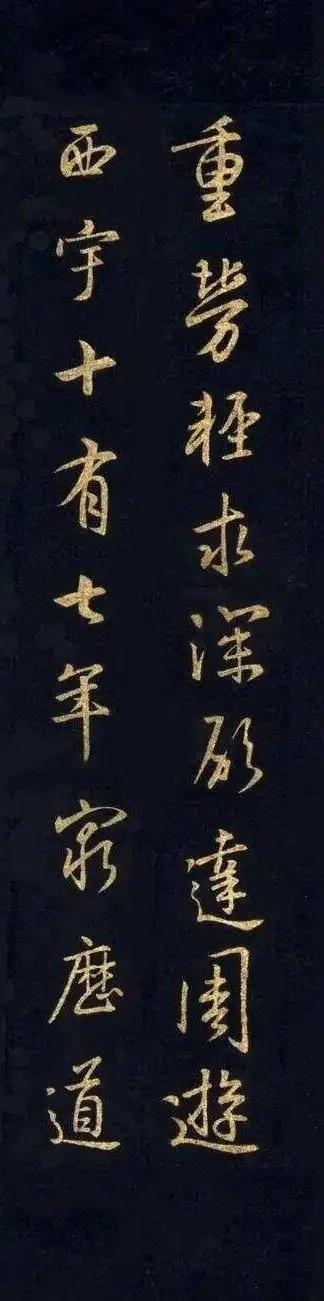 重劳轻求深願達周遊
西宇十有七年窮歷道